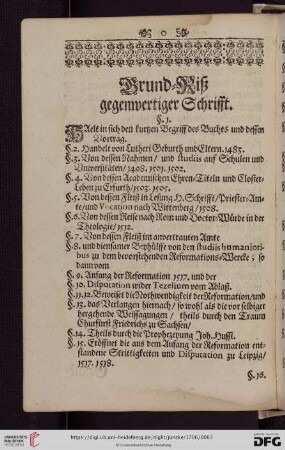 Grund-Riß
gegenwertiger Schrifft.
§. 1.
HAelt in sich den kurtzen Begriff des Buches und dessen
Vortrag.
§. 2. Handelt von Lutheri Geburth und Eltern. 1483.
§. 3. Von dessen Nahmen / und studiis auf Schulen und
Universitäten / 1498. 1501. 1502.
§. 4. Von dessen Academischen Ehren-Titeln und Closter-
Leben zu Erfurth / 1503. 1505.
§. 5. Von dessen Fleiß in Lesung H. Schrifft / Priester-Am-
te / und Vocation nach Wittenberg / 1508.
§. 6. Von dessen Reise nach Rom und Doctor-Würde in der
Theologie / 1512.
§. 7. Von dessen Fleiß im anvertrauten Amte
§. 8. und diensamer Beyhülffe von den studiis humaniori-
bus zu dem bevorstehenden Reformations-Wercke; so
dann vom
§. 9. Anfang der Reformation 1517. und der
§. 10. Disputation wider Tezelium vom Ablaß.
§. 11. 12. Beweiset die Nothwendigkeit der Reformation / und
§. 13. das Verlangen hiernach / so wohl als die vorselbiger
hergehende Weissagungen / theils durch den Traum
Churfürst Friedrichs zu Sachsen /
§. 14. Theils durch die Prophezeyung Joh. Hussi.
§. 15. Eröffnet die aus dem Anfang der Reformation ent-
standene Strittigkeiten und Disputation zu Leipzig /
1517. 1518.
§. 16.
UNIVERSITÄTS-
BIBLIOTHEK
HEIDELBERG
https://digi.ub.uni-heidelberg.de/diglit/juncker1706/0063
© Universitätsbibliothek Heidelberg
gefördert durch die
DFG